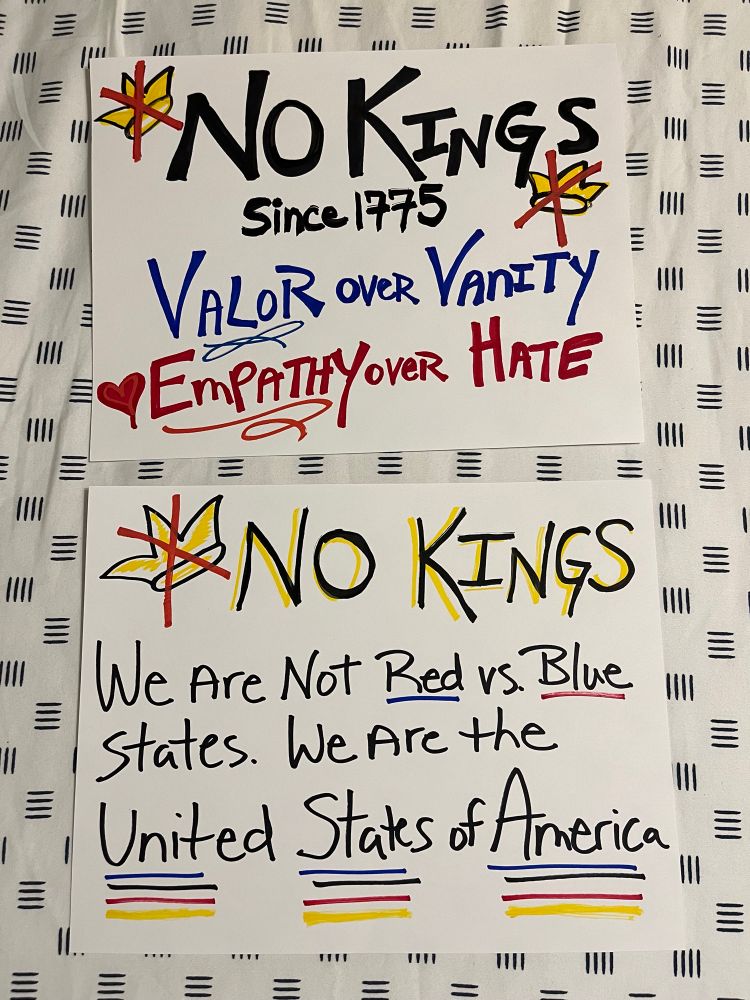 No Kings
Since 1775
Valor over Vanity
Empathy over Hate
No Kings
We Are Not Red vs. Blue
States. We Are the
United States of America